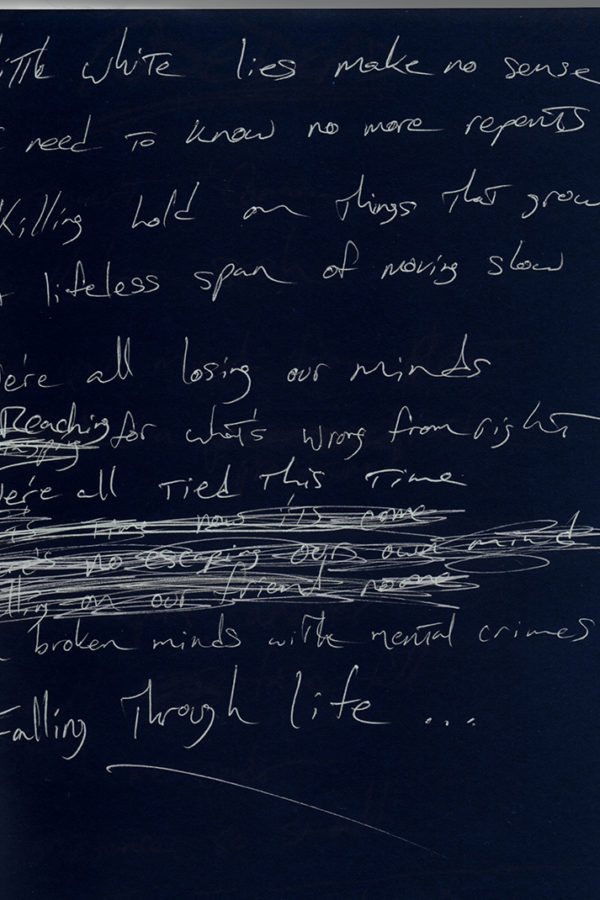 little white lies make no sense
need to know no more repents
Killing hold on things that grow
lifeless span of moving slow
We're all losing our minds
Reaching for what's wrong from right
We're all tied this time
time now it's
no escaping own mind
on our friend
broken minds with mental crimes
Falling Through life ...